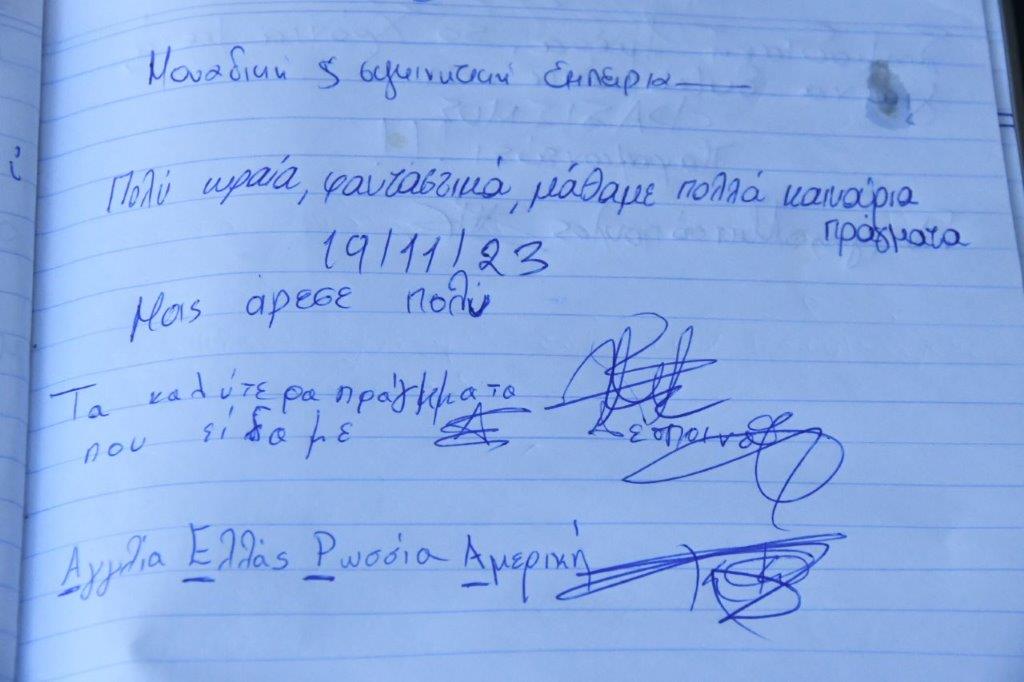 Μοναδική & συγκινητική εμπειρία
Πολύ ωραία, φανταστικά, μάθαμε πολλά καινούρια
πράγματα
19/11/23
Μας άρεσε πολύ
Τα καλύτερα πράγματα
που είδαμε
Δέσποινα
Αγγλία Ελλάς Ρωσσία Αμερική